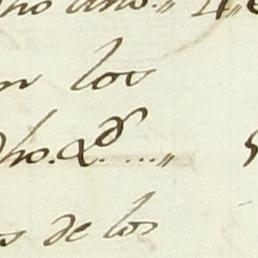 ho año..„ 4„
n los
dho. &.ᵃ......„ 5
s de los